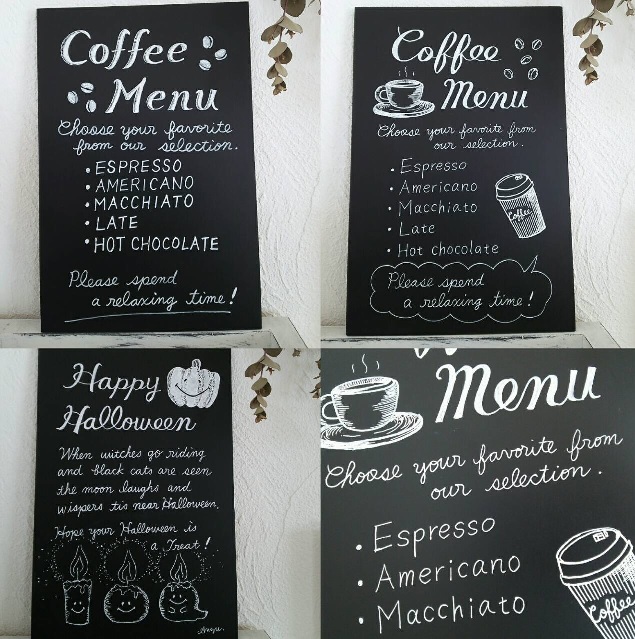 Coffee
Menu
Choose your favorite
from our selection.
• ESPRESSO
• AMERICANO
• MACCHIATO
• LATE
• HOT CHOCOLATE
Please spend
a relaxing time!
Coffee
Menu
Choose your favorite from
our selection.
• Espresso
• Americano
• Macchiato
• Late
• Hot chocolate
Coffee
Please spend
a relaxing time!
Happy
Halloween
When witches go riding
and black cats are seen
the moon laughs and
wispers tis near Halloween.
Hope your Halloween is
a Treat!
Menu
Choose your favorite from
our selection.
• Espresso
• Americano
• Macchiato
Coffee